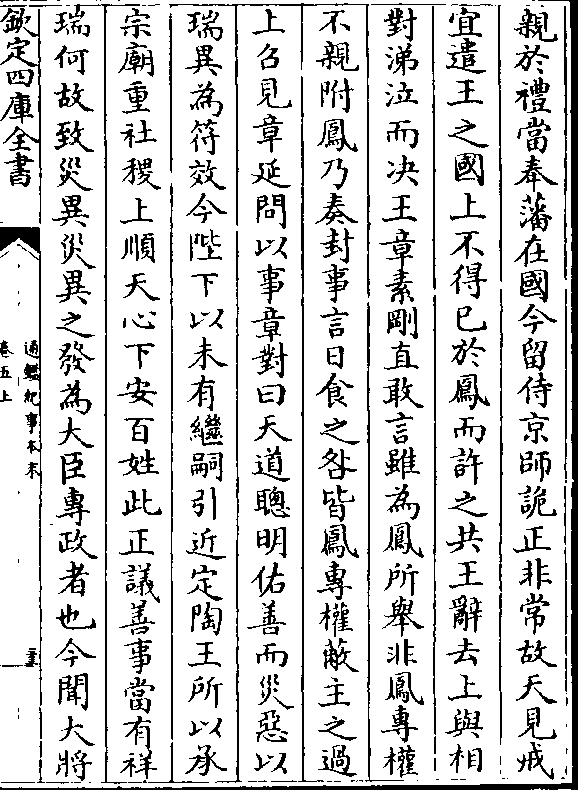 親於禮當奉藩在國今留侍京師詭正非常故天見戒
宜遣王之國上不得已於鳳而許之共王辭去上與相
對涕泣而决王章素剛直敢言雖為鳳所舉非鳳專權
不親附鳳乃奏封事言日食之咎皆鳳專權蔽主之過
上召見章延問以事章對曰天道聰明佑善而災惡以
瑞異為符效今陛下以未有繼嗣引近定陶王所以承
宗廟重社稷上順天心下安百姓此正議善事當有祥
瑞何故致災異災異之發為大臣專政者也今聞大將
欽定四庫全書
通鑑紀事本末
卷五上